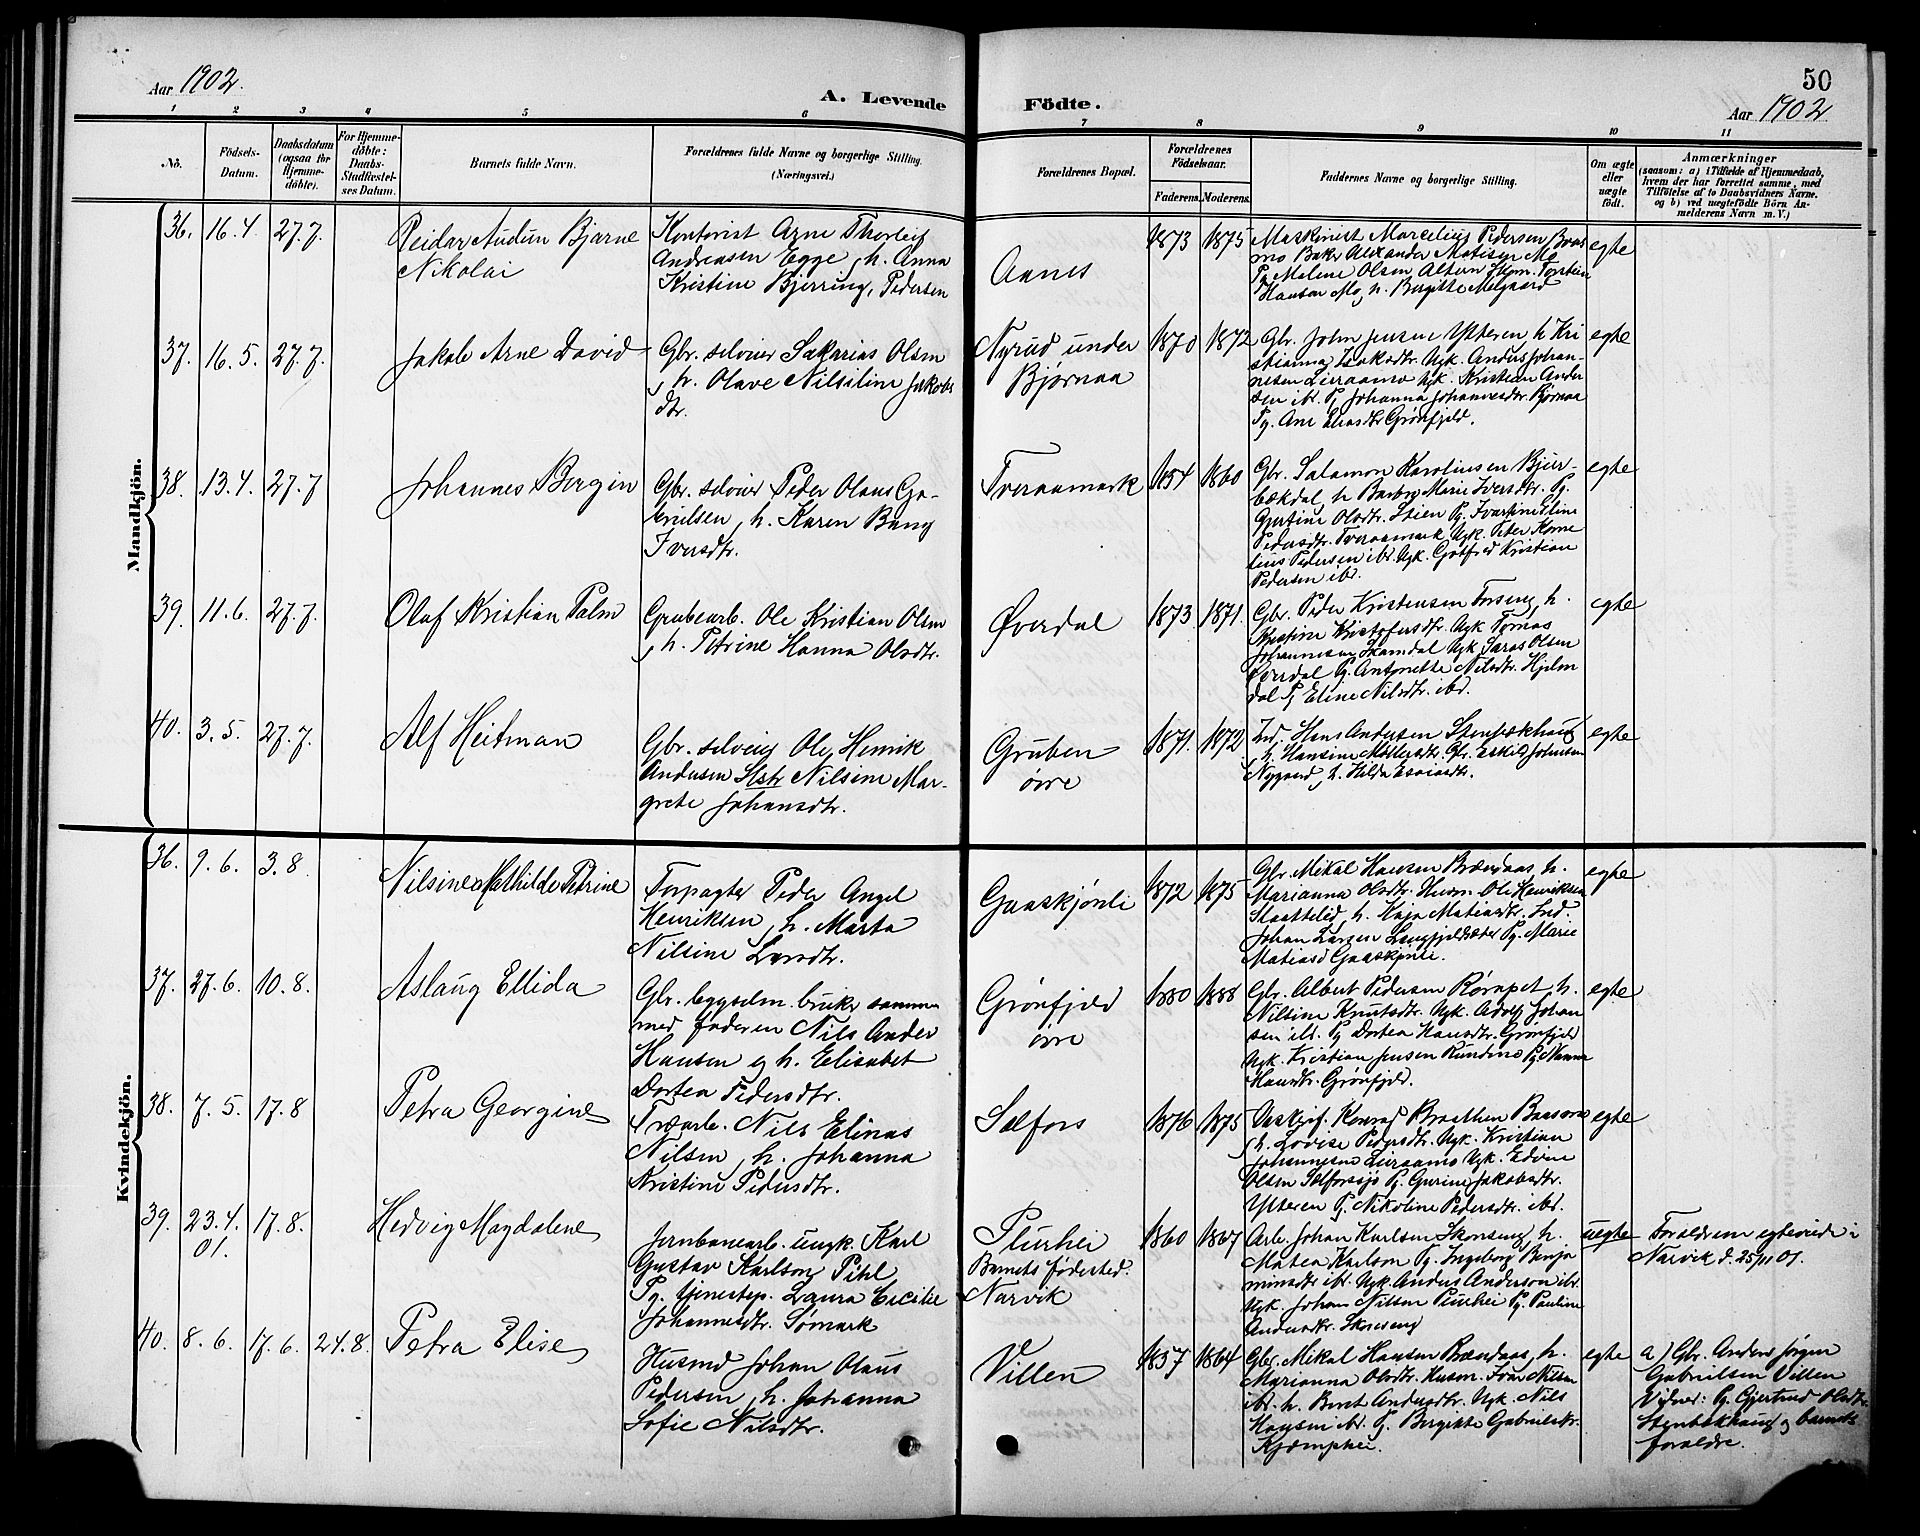 Aar 1902.
A. Levende
Födte.
50
Aar 1902
1 2 3 4 5 6 7 8 9 10 11
No.
Födsels-
Datum.
Daabsdatum
(ogsaa for
Hjemme-
döbte).
For Hjemme-
döbte:
Daabs-
Stadfæstel-
ses Datum.
Barnets fulde Navn.
Forældrenes fulde Navne og borgerlige Stilling.
(Næringsvei.)
Forældrenes Bopæl.
Forældrenes
Födselsaar.
Faderens. Moderens.
Faddernes Navne og borgerlige Stilling.
Om ægte
eller
uægte
födt.
Anmærkninger
(saasom: a) i Tilfælde af Hjemmedaab,
hvem der har forrettet samme, med
Tilföielse af to Daabsvidners Navne.
og b) ved uægtefödte Börn An-
melderens Navn m. V.)
Mandkjön.
36. 16.4. 27.7.
Reidar Audun Bjarne
Nikolai
Kontorist Arne Thorleif
Andreasen Egge, h. Anna
Kristine Bjerring, Pedersen
Aanes
1873 1875
Maskinist Marcelius Pedersen Baas
mo Baker Alexander Matisen Mo
Pg Malene Olsen Altern Skom. Torstein
Hansen Mo, h. Birgitte Melgaard
egte
37. 16.5. 27.7.
Jakob Arne David
Gbr. selveier Sakarias Olsen
, h. Olave Nilsiline Jakobs
dtr.
Nyrud under
Bjørnaa
1870 1872
Gbr. John Jensen Ytteren h Kri
stianna Isaksdtr. Ugk. Anders Johan-
nesen Lieraamo Ugk. Kristian Ander
sen ibd. Pg Johanna Johannesdtr. Bjørnaa
Pg. Ane Eliasdtr Grønfjeld.
egte
38. 13.4. 27.7
Johannes Bergin
Gbr. selveier Peder Olaus Ga-
brielsen, h. Karen Bang
Iversdtr.
Tveraamark
1854 1860
Gbr. Salamon Karoliussen Bjer-
bækdal, h Barbro Marie Iversdtr. Pg.
Gjertine Olsdtr. Stien Pg. Ivartine Eline
Pedersdtr. Tveraamark Ugk. Peter Korne
lius Pedersen ibd. Ugk. Gotfred Kristian
Pedersen ibd.
egte
39. 11.6. 27.7.
Olaf Kristian Palm
Grubearb. Ole Kristian Olsen
, h. Petrine Hanna Olsdtr.
Øverdal
1873. 1871.
Gbr. Peder Kristensen Forseng, h.
Kristine Kristofersdtr. Ugk Tomas
Johannesen Skamdal Ugk. Saras Olsen
Øverdal Pg. Antonette Nilsdtr. Hjelm
dal Pg Eline Nilsdtr. ibd.
egte
40. 3.5. 27.7.
Alf Heitman
Gbr. selveier Ole Henrik
Andersen Nilsine Mar-
grete Johansdtr.
Gruben
øvre
1871. 1872.
Ind. Hans Andersen Stenbækhaug
, h. Hansine Mortensdtr. Gbr. Eskild Johansen
Nygaard, h. Hilda Esaiasdtr.
egte
Kvindekjön.
36. 9.6. 3.8
Nilsine Mathilde Petrine
Forpagter Peder Angel
Henriksen, h. Marta
Nilsine Larsdtr.
Gaaskjønli
1872 1875
Gbr. Mikal Hansen Brændaas, h.
Marianna Olsdtr. Husm. Ole Henriksen
Slaattelid, h. Kaja Matiasdtr. Ind.
Johan Larsen Langfjeldsæter Pg. Marie
Matiasd Gaaskjønli.
egte
37. 27.6. 10.8.
Aslaug Ellida
Gbr. bygselm. bruker sammen
med faderen Nils Ander
Hansen og h. Elisabet
Dortea Pedersdtr.
Grønfjeld
øvre
1880 1888
Gbr. Albert Pedersen Rørnøset, h.
Nilsine Knutsdtr. Ugk. Adolf Johan
sen ibd. Pg Dortea Hansdtr. Grønfjeld
Ugk. Kristian Jensen Rundmo Pg. Nanna
Hansdtr. Grønfjeld.
egte
38. 7.5. 17.8
Petra Georgine
Træarb. Nils Elinas
Nilsen, h. Johanna
Kristine Pedersdtr.
Selfors
1876 1875
Opskjf. Konrad Braathen Baasmo
, h. Lovise Pedersdtr. Ugk. Kristian
Johannesen Lieraamo Ugk. Edvine
Olsen Selforssjø Pg. Gurine Jakobsdtr.
Ytteren Pg. Nikoline Pedersdtr. ibd.
egte
39. 23.4. 17.8.
01.
Hedvig Magdalene
Jernbanearb. ungk. Karl
Gustav Karlson Pihl
Pg. tjenestep. Laura Cecilie
Johannesdtr. Sømark
Plurhei
Barnets fødested.
Narvik
1860 1867
Arb. Johan Karlsen Skonseng, h.
Matea Karlson Pg. Ingeborg Benja
minsdtr ibd. Ugk. Anders Anderson ibd.
Ugk. Johan Nilsen Plurhei Pg. Pauline
Andersdtr. Skonseng
uegte
Foreldrene egteviede i
Narvik d. 25/11 01.
40. 8.6. 17.6. 24.8.
Petra Elise
Husmd Johan Olaus
Pedersen, h. Johanna
Sofie Nilsdtr.
Villen
1857 1864
Gbr. Mikal Hansen Brændaas, h.
Marianna Olsdtr. Husm. Ivar Nilsen
ibd. h. Beret Andersdtr. Ugk. Nils
Hansen ibd. Pg. Birgitte Gabrielsdtr.
Kjæmphei.
egte
a) Gbr. Anders Jørgen
Gabrielsen Villen
Vidner: Pg Gjertrud Olsdtr
Stenbækhaug og barnets
foreldre.